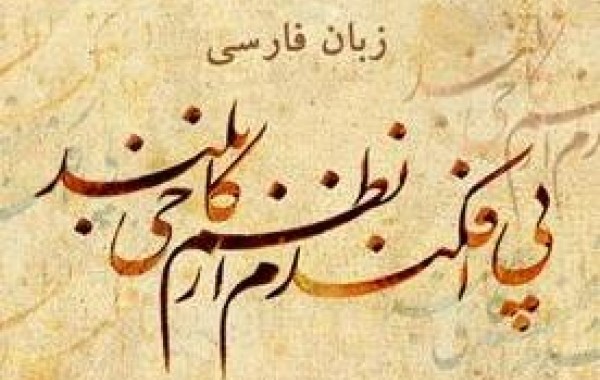 زبان فارسی
پی افکندم از نظم کاخی بلند